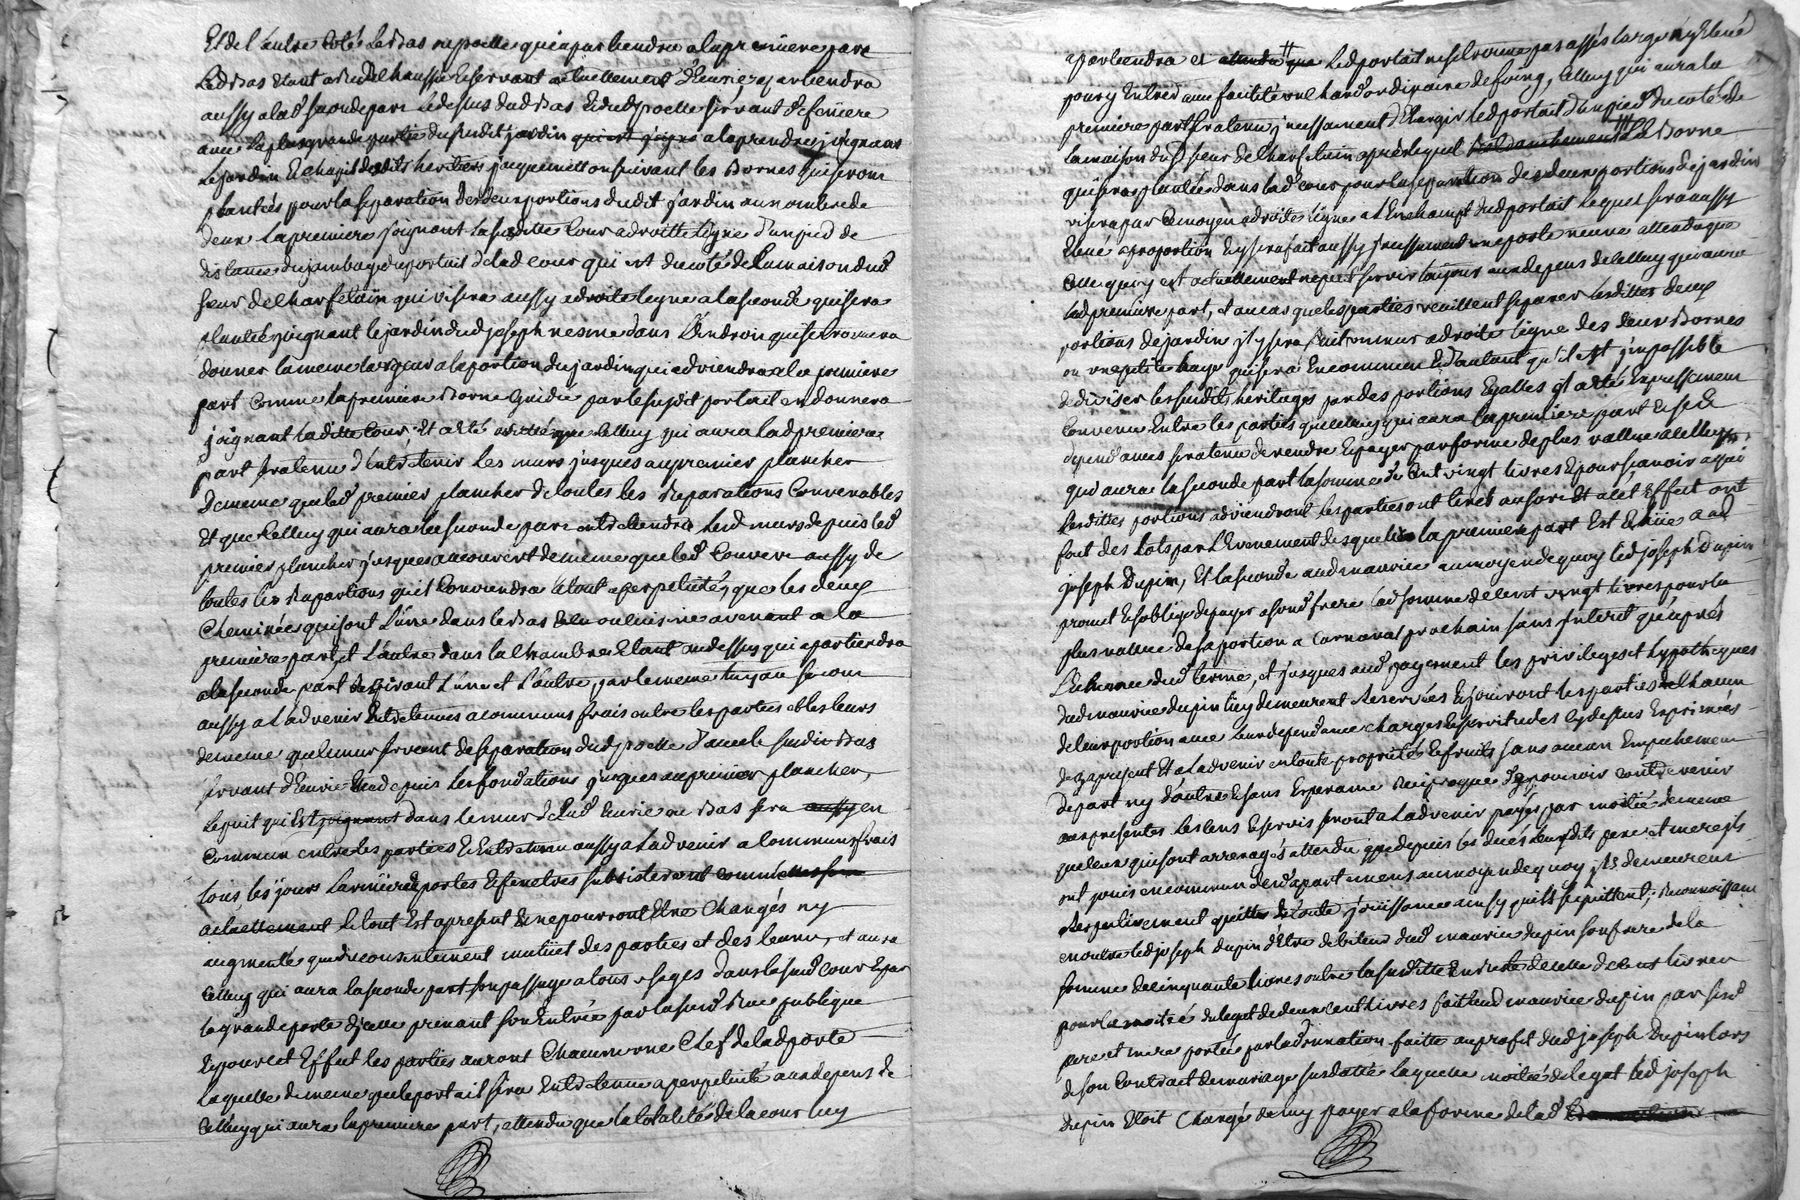 Et de l'autre coté le bas ou poelle qui apartiendra a la premiere part
Led bas etant Servant actuellement d'Ecurie apartiendra
aussy a lad seconde part le dessus dud Bas Et dud poelle servant de feniere
avec la plus grande partie du susdit jardin a la prendre joignant
le jardin desdits heritiers jaquemetton suivant les Bornes qui seront
plantées pour la separation des deux portions dudit jardin au nombre de
deux la premiere joignant la susditte Cour a droitte ligne d'un pied de
distance du jambage du portail de lad cour qui est du coté de la maison dud
sieur de Charfetain qui visera aussy a droite ligne a la seconde qui sera
plantée joignant le jardin dud joseph nesme dans l'Endroit qui se trouvera
donner la meme largeur a la portion du jardin qui adviendra a la premiere
part Comme la premiere Borne Guidée par le susdit portail en donnera
joignant laditte Cour, Et a eté arreté que Celluy qui aura lad premiere
part sera tenu d'Entretenir les murs jusques au premier plancher
De meme que led premier plancher de toutes les Reparations Convenables
Et que Celluy qui aura la seconde part entretiendra lesd murs depuis led
premier plancher jusques au couvert de meme que led Couvert aussy de
toutes les Reparations qu'il Conviendra le tout a perpetuité, que les deux
Cheminées qui sont l'une dans le Bas ou cuisine avenant a la
premiere part et l'autre dans la Chambre Etant au dessus qui apartiendra
a la seconde part l'une et l'autre, par le meme tuyau seront
aussy a l'advenir Entretenues a communs frais entre les parties et les leurs
de meme que le mur servant de separation dud poelle d'avec le susdit Bas
servant d'Ecurie depuis les fondations jusques au premier plancher,
Le puit qui Est joignant dans le mur de lad Ecurie ou Bas sera aussy en
Commun entre les parties Et Entretenu aussy a l'advenir a communs frais
tous les jours portes Et fenetres subsisteront comme
actuellement le tout Est a present Et ne pourront Etre Changés ny
augmentés que du consentement mutuel des parties et des leurs, et aura
Celluy qui aura la seconde part son passage a tous usages dans la susd Cour Et par
la grande porte d'jcelle prenant son Entrée par la susd Rue publique
Et pour cet Effet les parties auront Chacun une Clef de lad porte
Laquelle de meme que le portail sera Entretenue a perpetuité aux depens de
Celluy qui aura la premiere part, attendu que la totalité de la cour luy
apartiendra et attendu que Led portail ne se trouve pas assés large ny Elevé
pour y Entrer avec facilité un Char ordinaire de foing, Celluy qui aura la
premiere part sera tenu jncessament d'Elargir led portail d'un pied du coté de
la maison du Sr sieur de Charfetain apres lequel la Borne
qui sera plantée dans lad cour pour la separation des deux portions de jardin
visera par Ce moyen a droite ligne a l'Enchampt dud portail Lequel sera aussy
Elevé a proportion Et y sera fait aussy jncessament une porte neuve attendu que
Celle qui y est actuellement ne peut servir toujours aux depens de Celluy qui aura
lad premiere part, et au cas que les parties veuillent separer lesdittes deux
portions de jardin jl y sera fait un mur a droite ligne des deux Bornes
ou une petite haye qui sera En commun Et d'autant qu'il est jmpossible
de diviser les susdits heritages par des portions Egalles jl a eté Expressement
Convenu Entre les parties que celluy qui aura la premiere part Et ses
dependances sera tenu de rendre Et payer par forme de plus vallue a Celluy
qui aura la seconde part la somme de Cent vingt livres Et pour scavoir a qui
lesdittes portions adviendront les parties ont tirés au sort Et a cet Effet ont
fait des Lots par l'Evenement desquels la premiere part Est Echüe aud
joseph Dupin, Et la seconde aud maurice au moyen de quoy led joseph Dupin
promet Et s'oblige de payer a sond frere lad somme de Cent vingt livres pour la
plus vallue de sa portion a Carnaval prochain sans Interet qu'apres
L'Echeance dud terme, et jusques aud payement les privileges et hypotheques
dud maurice dupin luy demeurent Reservées Et jouiront les parties chacun
de leur portion avec leurs dependances charges Et servitudes cy dessus Exprimées
dez a present Et a l'advenir en toute proprieté Et fruits sans aucun Empechement
de part ny d'autre Et sans Esperance Reciproque d'y pouvoir contrevenir
aux presentes les cens Et servis seront a l'advenir payés par moitié de meme
que ceux qui sont arreragés attendu que depuis les decés leursdits pere et mere jls
ont jouis en commun desd apartemens au moyen de quoy jls demeurent
Respectivement quittes de toute jouissance ainsy qu'ils se quittent, Reconnoissant
en outre led joseph dupin d'Etre debiteur dud maurice dupin son frere de la
somme de cinquante livres outre la susditte de celle de Cent livres
pour la moitié du legat de deux cent livres fait aud maurice dupin par sesd
pere et mere portée par la donnation faitte au profit dud joseph Dupin lors
de son Contract de mariage susdatté laquelle moitié de legat led joseph
dupin Etoit Chargé de luy payer a la forme de lad